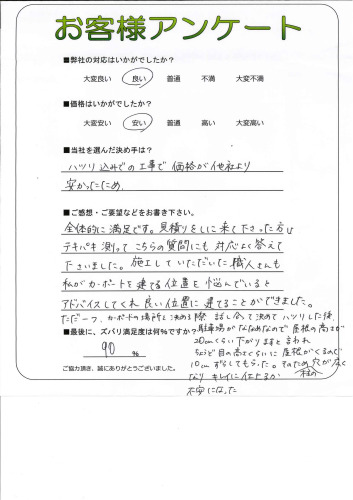 お客様アンケート
■弊社の対応はいかがでしたか？
大変良い 良い 普通 不満 大変不満
■価格はいかがでしたか？
大変安い 安い 普通 高い 大変高い
■当社を選んだ決め手は？
ハツリ込みでの工事で価格が他社より
安かったため
■ご感想・ご要望などをお書き下さい。
全体的に満足です。見積りをしに来て下さった方は
テキパキ測って こちらの質問にも対応よく答えて
下さいました。施工していただいた職人さんも
私がカーポートを建てる位置を悩んでいると
アドバイスしてくれ良い位置に建てることができました。
ただ一つ、カーポートの場所を決める際 話し合って決めてハツリした後、
駐車場がななめなので屋根の高さが
20cmくらい下がりますと言われ
ちょうど目の高さくらいに屋根がくるので
10cmずらしてもらった。そのため穴が広く
なり キレイに仕上るか
柱の
不安になった
■最後に、ズバリ満足度は何%ですか？
90 %
ご協力頂き、誠にありがとうございました。